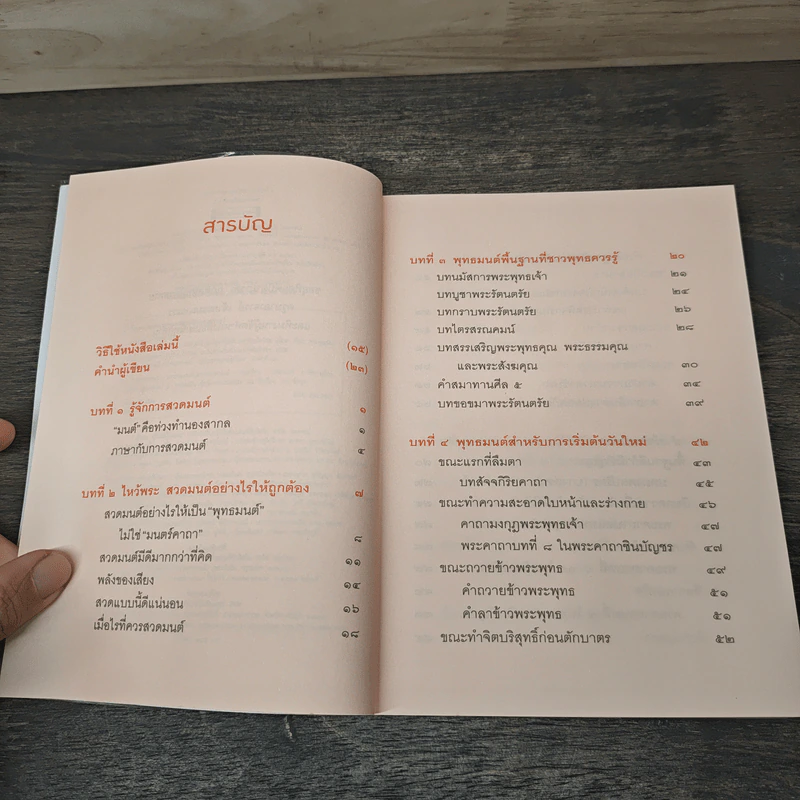 สารบัญ
วิธีใช้หนังสือเล่มนี้ (๑๕)
คำนำผู้เขียน (๒๓)
บทที่ ๑ รู้จักการสวดมนต์ ๑
"มนต์" คือท่วงทำนองสากล ๑
ภาษากับการสวดมนต์ ๕
บทที่ ๒ ไหว้พระ สวดมนต์อย่างไรให้ถูกต้อง ๗
สวดมนต์อย่างไรให้เป็น "พุทธมนต์"
ไม่ใช่ "มนตร์คาถา" ๘
สวดมนต์มีดีมากกว่าที่คิด ๑๑
พลังของเสียง ๑๔
สวดแบบนี้ดีแน่นอน ๑๖
เมื่อไรที่ควรสวดมนต์ ๑๘
บทที่ ๓ พุทธมนต์พื้นฐานที่ชาวพุทธควรรู้ ๒๐
บทนมัสการพระพุทธเจ้า ๒๑
บทบูชาพระรัตนตรัย ๒๔
บทกราบพระรัตนตรัย ๒๖
บทไตรสรณคมน์ ๒๘
บทสรรเสริญพระพุทธคุณ พระธรรมคุณ
และพระสังฆคุณ ๓๐
คำสมาทานศีล ๕ ๓๔
บทขอขมาพระรัตนตรัย ๓๙
บทที่ ๔ พุทธมนต์สำหรับการเริ่มต้นวันใหม่ ๔๒
ขณะแรกที่ลืมตา ๔๓
บทสัจจกิริยคาถา ๔๕
ขณะทำความสะอาดใบหน้าและร่างกาย ๔๖
คาถามงกุฎพระพุทธเจ้า ๔๗
พระคาถาบทที่ ๘ ในพระคาถาชินบัญชร ๔๗
ขณะถวายข้าวพระพุทธ ๔๙
คำถวายข้าวพระพุทธ ๕๑
คำลาข้าวพระพุทธ ๕๑
ขณะทำจิตบริสุทธิ์ก่อนตักบาตร ๕๒